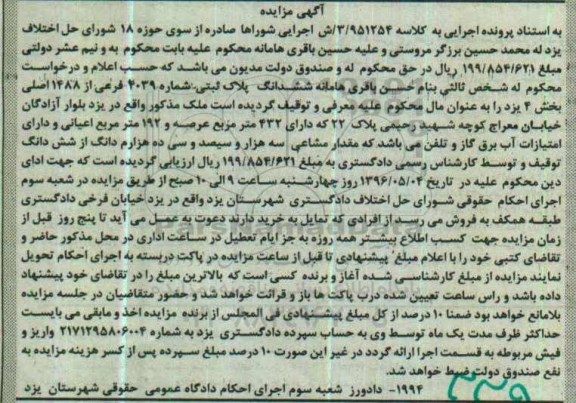 آگهی مزایده
به استناد پرونده اجرایی به کلاسه ۳/۹۵۱۲۵۴/ش اجرایی شوراها صادره از سوی حوزه ۱۸ شورای حل اختلاف
یزد له محمد حسین برزگر مروستی و علیه حسین باقری هامانه محکوم علیه بابت محکوم به و نیم عشر دولتی
مبلغ ۱۹۹/۸۵۴/۶۲۱ ریال در حق محکوم له و صندوق دولت مدیون می باشد که حسب اعلام و درخواست
محکوم له شخص ثالثی بنام حسن باقری هامانه ششدانگ پلاک ثبتی شماره ۴۰۳۹ فرعی از ۱۴۸۸ اصلی
بخش ۴ یزد را به عنوان مال محکوم علیه معرفی و توقیف گردیده است ملک مذکور واقع در یزد بلوار آزادگان
خیابان معراج کوچه شهید رحیمی پلاک ۲۲ که دارای ۴۳۲ متر مربع عرصه و ۱۹۲ متر مربع اعیانی و دارای
امتیازات آب برق گاز و تلفن می باشد که مقدار مشاعی سه هزار و سیصد و سی ده هزارم دانگ از شش دانگ
توقیف و توسط کارشناس رسمی دادگستری به مبلغ ۱۹۹/۸۵۴/۶۲۱ ریال ارزیابی گردیده است که جهت ادای
دین محکوم علیه در تاریخ ۱۳۹۶/۰۵/۰۴ روز چهارشنبه ساعت ۹ الی ۱۰ صبح از طریق مزایده در شعبه سوم
اجرای احکام حقوقی شورای حل اختلاف دادگستری شهرستان یزد واقع در یزد خیابان فرخی دادگستری
طبقه همکف به فروش می رسد از افرادی که تمایل به خرید دارند دعوت به عمل می آید تا پنج روز قبل از
زمان مزایده جهت کسب اطلاع بیشتر همه روزه به جز ایام تعطیل در ساعت اداری در محل مذکور حاضر و
تقاضای کتبی خود را با اعلام مبلغ پیشنهادی تا قبل از ساعت مزایده در پاکت دربسته به اجرای احکام تحویل
نمایند مزایده از مبلغ کارشناسی شده آغاز و برنده کسی است که بالاترین مبلغ را در تقاضای خود پیشنهاد
داده باشد و راس ساعت تعیین شده درب پاکت ها باز و قرائت خواهد شد و حضور متقاضیان در جلسه مزایده
بلامانع خواهد بود ضمنا ۱۰ درصد از کل مبلغ پیشنهادی فی المجلس از برنده مزایده اخذ و مابقی می بایست
حداکثر ظرف مدت یک ماه توسط وی به حساب سپرده دادگستری یزد به شماره ۲۱۷۱۲۹۵۸۰۶۰۰۴ واریز و
فیش مربوطه به قسمت اجرا ارائه گردد در غیر این صورت ۱۰ درصد مبلغ سپرده پس از کسر هزینه مزایده به
نفع صندوق دولت ضبط خواهد شد.
۱۹۹۴- دادورز شعبه سوم اجرای احکام دادگاه عمومی حقوقی شهرستان یزد